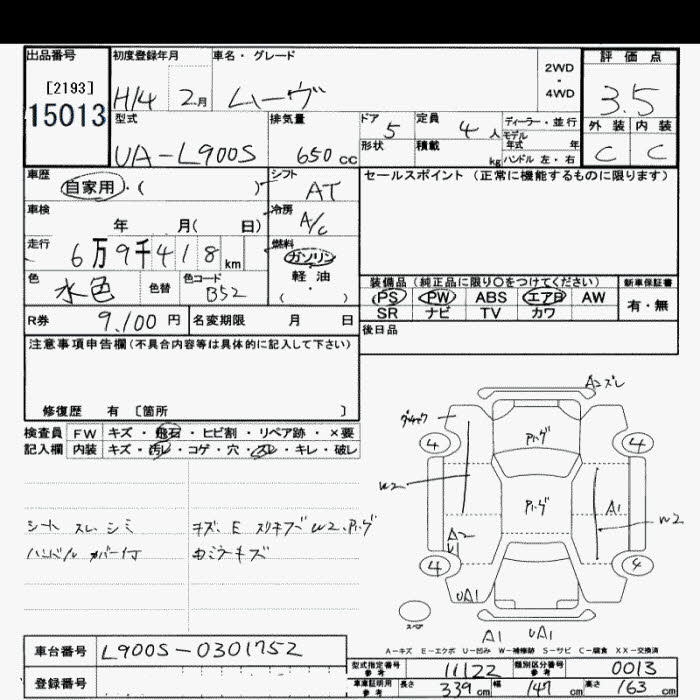 出品番号
[2193]
15013
初度登録年月
H14 2月
車名・グレード
ムーヴ
2WD
・
4WD
評価点
3.5
外装 内装
C C
型式
UA-L900S
排気量
650 cc
ドア 5
形状
定員 4 人
積載 kg
ディーラー・並行
モデル
年式 年
ハンドル 左・右
車歴
自家用・( )
シフト
AT
セールスポイント(正常に機能するものに限ります)
車検
年 月( 日)
冷房
A/C
走行
6万9千418km
燃料
ガソリン
軽・油
・
( )
色
水色
色替
色コード
B52
装備品(純正品に限り○をつけてください)
PS PW ABS エアB AW
SR ナビ TV カワ
新車保証書
有・無
R券 9,100円
名変期限 月 日
後日品
注意事項申告欄(不具合内容等は具体的に記入して下さい)
修復歴 有 〔箇所 〕
検査員 FW キズ・飛石・ヒビ割・リペア跡・×要
記入欄 内装 キズ・汚レ・コゲ・穴・スレ・キレ・破レ
シート スレ シミ
ハンドル カバー付
キズ、E スリキズ W2、Pハ゜ーグ
Aスレ
4 4
W2
A1
W2
A2
U1
4 4
UA1
スペア
A1 UA1
A-キズ E-エクボ U-凹み W-補修跡 S-サビ C-腐食 XX-交換済
車台番号 L900S-0301752
登録番号
型式指定番号
参考
11122
類別区分番号
参考
0013
車庫証明用
参考
長さ 339cm 幅 147cm 高さ 163cm